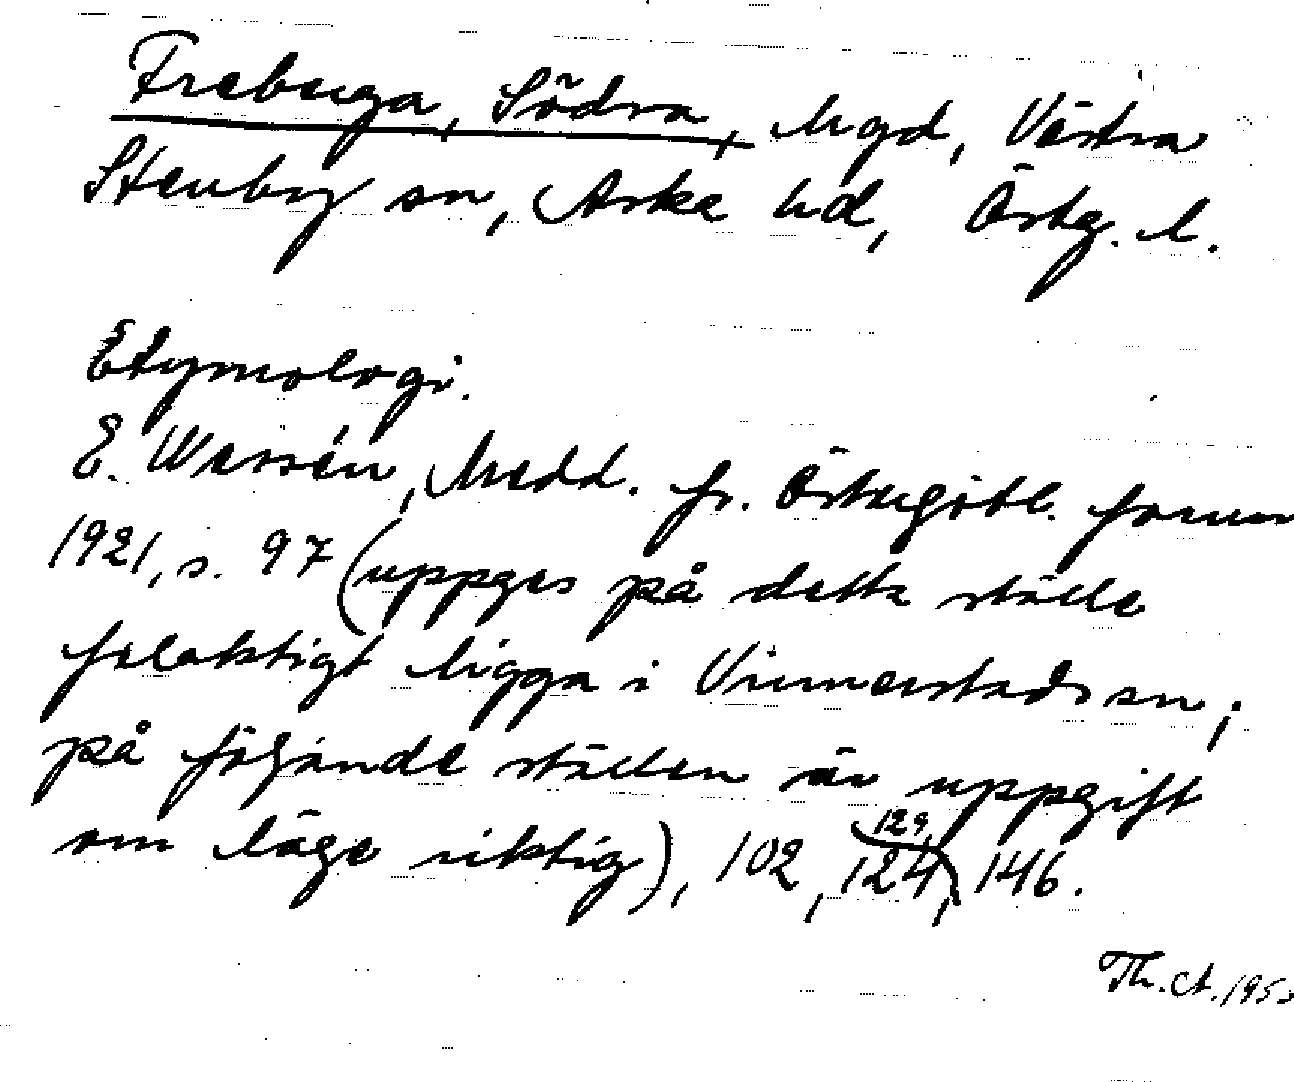 Frebuga, Södra, hgd, Västra
Stenby sn, Aska hd, Östg. l.
Etymologi.
E. Wessén, Medd. fr. Östergötl. fornm
1921, s. 97 (uppges på detta ställe
felaktigt ligga i Vinnerstads sn;
på följande ställen är uppgift
om läge riktig), 102, 124, 129, 146.
Th. A. 195